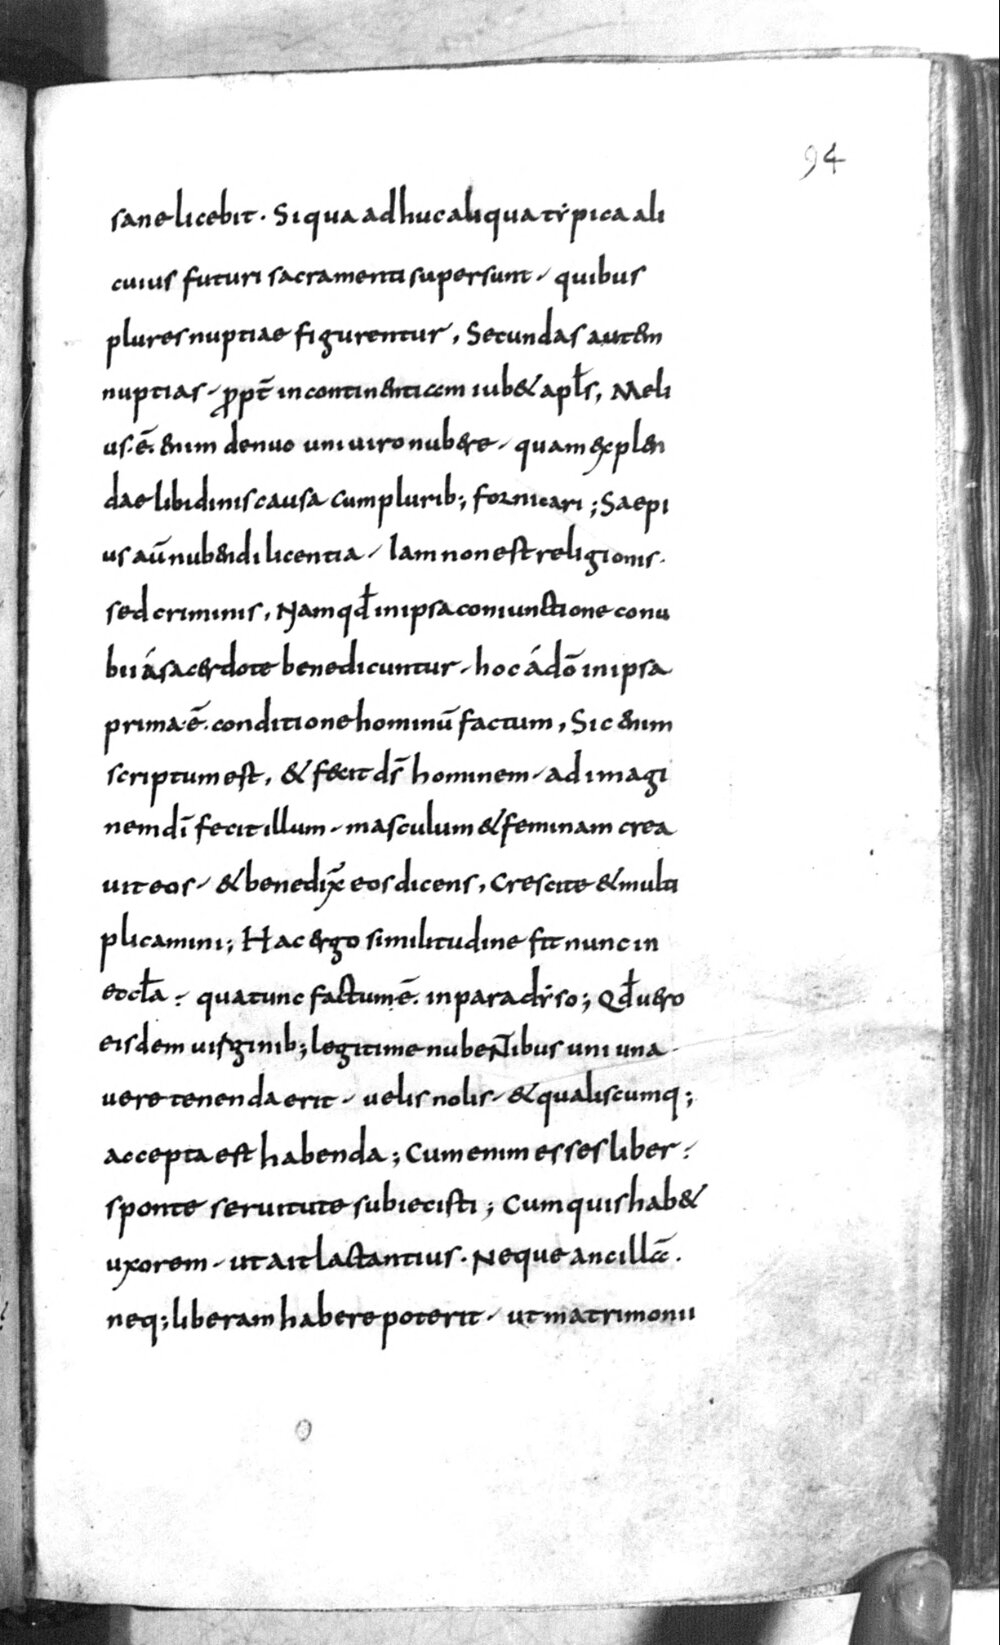 94
sane licebit. Si qua adhuc aliqua tẏpica ali
cuius futuri sacramenti supersunt, quibus
plures nuptiae figurentur, Secundas aut&m
nuptias, ꝓpt̄ incontin&nticam iub& apłs, Meli
us.ē. &nim denuo uni uiro nub&re, quam expl&n
dae libidinis causa cum plurib; fornicari; Saepi
us aū nub&ndi licentia, Iam non est religionis.
sed criminis, Nam qđ in ipsa coniunctione conu
bii á sac&rdote benedicuntur, hoc á dō in ipsa
prima.ē. conditione hominū factum, Sic &nim
scriptum est, & fecit ds̄ hominem, ad imagi
nem dī fecit illum, masculum & feminam crea
uit eos, & benedix̄ eos dicens, Crescite & multi
plicamini; Hac &rgo similitudine fit nunc in
eccła: qua tunc factum.ē. in paradẏso; Qđ u&ro
eisdem uirginib; legitime nubentibus uni una
uere tenenda erit, uelis nolis, & qualiscumq;
accepta est habenda; Cum enim esses liber:
sponte seruitute subiecisti; Cum quis hab&
uxorem, ut ait lactantius. Neque ancillā.
neq; liberam habere poterit, ut matrimonii